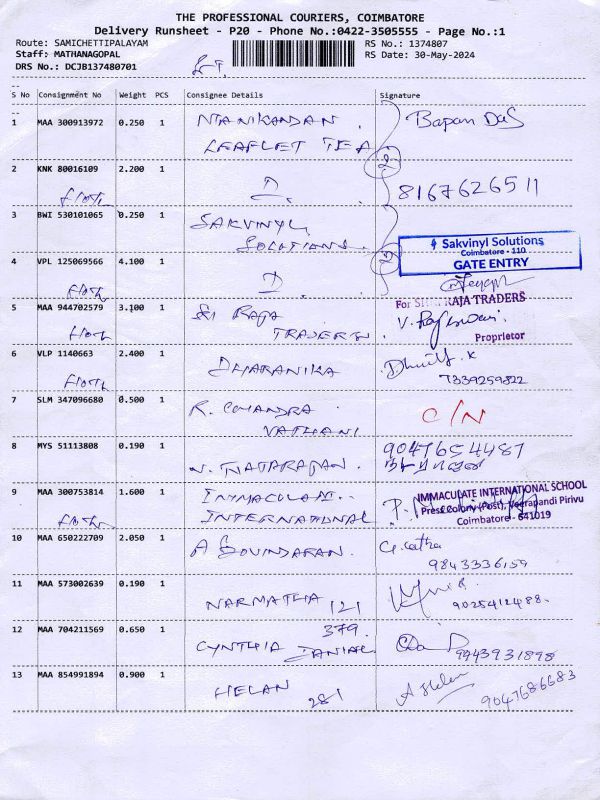 THE PROFESSIONAL COURIERS, COIMBATORE
Delivery Runsheet - P20 - Phone No.:0422-3505555 - Page No.:1
Route: SAMICHETTIPALAYAM
Staff: MATHANAGOPAL
DRS No.: DCJB137480701
RS No.: 1374807
RS Date: 30-May-2024
S No Consignment No Weight PCS Consignee Details Signature
1 MAA 300913972 0.250 1 MANIKANDAN Bapan Das
LEAFLET TEA
2 KNK 80016109 2.200 1 D. 8167626511
3 BWI 530101065 0.250 1 SAKVINYL
SOLUTIONS
Sakvinyl Solutions
Coimbatore - 110
GATE ENTRY
4 VPL 125069566 4.100 1 D.
5 MAA 944702579 3.100 1 SRI RAJA
TRADERS
For SRI RAJA TRADERS
V. Rajeswari
Proprietor
6 VLP 1140663 2.400 1 DHARANIKA
7339259822
7 SLM 347096680 0.500 1 R. CHANDRA
VATHANI
C/N
8 MYS 51113808 0.190 1 N. NATARAJAN. 9047654487
9 MAA 300753814 1.600 1 IMMACULATE
INTERNATIONAL
IMMACULATE INTERNATIONAL SCHOOL
Press Colony (Post), Veerapandi Pirivu
Coimbatore - 641019
10 MAA 650222709 2.050 1 A GOUNDARAN. G. Latha
9843336159
11 MAA 573002639 0.190 1 NARMATHA 121
9025412488
12 MAA 704211569 0.650 1 379
CYNTHIA DANIAL
9943931898
13 MAA 854991894 0.900 1 HELAN 281 A Helen
9047686683